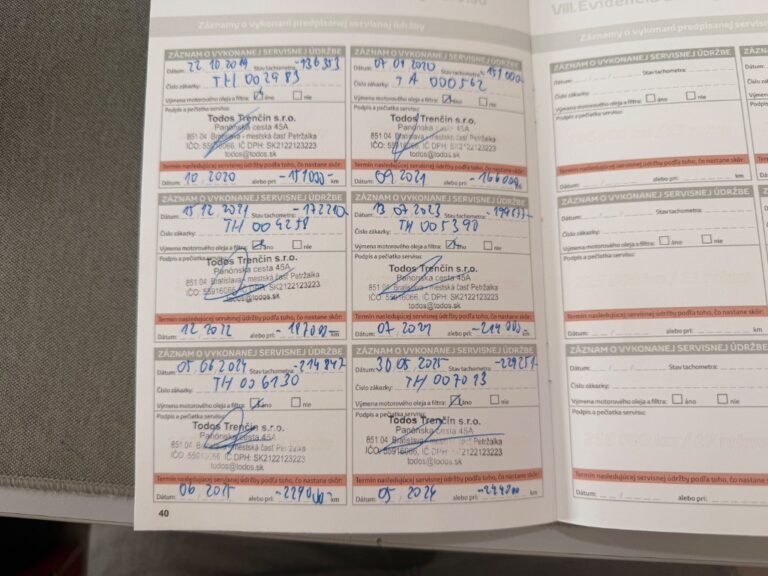 Záznamy o vykonaní predpísanej servisnej údržby
ZÁZNAM O VYKONANEJ SERVISNEJ ÚDRŽBE
Dátum: 22 10 2019 Stav tachometra: -136353
Číslo zákazky: TH 002983
Výmena motorového oleja a filtra: áno nie
Podpis a pečiatka servisu:
Todos Trenčín s.r.o.
Panónska cesta 45A
851 04 Bratislava - mestská časť Petržalka
IČO: 55916066, IČ DPH: SK2122123223
todos@todos.sk
Termín nasledujúcej servisnej údržby podľa toho, čo nastane skôr:
Dátum: 10 2020 alebo pri: -151000- km
ZÁZNAM O VYKONANEJ SERVISNEJ ÚDRŽBE
Dátum: 07 09 2020 Stav tachometra: 151000-
Číslo zákazky: TA 000562
Výmena motorového oleja a filtra: áno nie
Podpis a pečiatka servisu:
Todos Trenčín s.r.o.
Panónska cesta 45A
851 04 Bratislava - mestská časť Petržalka
IČO: 55916066, IČ DPH: SK2122123223
todos@todos.sk
Termín nasledujúcej servisnej údržby podľa toho, čo nastane skôr:
Dátum: 09 2021 alebo pri: -166000- km
ZÁZNAM O VYKONANEJ SERVISNEJ ÚDRŽBE
Dátum: 15 12 2021 Stav tachometra: -172210-
Číslo zákazky: TH 004258
Výmena motorového oleja a filtra: áno nie
Podpis a pečiatka servisu:
Todos Trenčín s.r.o.
Panónska cesta 45A
851 04 Bratislava - mestská časť Petržalka
IČO: 55916066, IČ DPH: SK2122123223
todos@todos.sk
Termín nasledujúcej servisnej údržby podľa toho, čo nastane skôr:
Dátum: 12 2022 alebo pri: -187000- km
ZÁZNAM O VYKONANEJ SERVISNEJ ÚDRŽBE
Dátum: 13 07 2023 Stav tachometra: -199577-
Číslo zákazky: TH 005390
Výmena motorového oleja a filtra: áno nie
Podpis a pečiatka servisu:
Todos Trenčín s.r.o.
Panónska cesta 45A
851 04 Bratislava - mestská časť Petržalka
IČO: 55916066, IČ DPH: SK2122123223
todos@todos.sk
Termín nasledujúcej servisnej údržby podľa toho, čo nastane skôr:
Dátum: 07 2024 alebo pri: -214000- km
ZÁZNAM O VYKONANEJ SERVISNEJ ÚDRŽBE
Dátum: 05 06 2024 Stav tachometra: -214847
Číslo zákazky: TH 006130
Výmena motorového oleja a filtra: áno nie
Podpis a pečiatka servisu:
Todos Trenčín s.r.o.
Panónska cesta 45A
851 04 Bratislava - mestská časť Petržalka
IČO: 55916066, IČ DPH: SK2122123223
todos@todos.sk
Termín nasledujúcej servisnej údržby podľa toho, čo nastane skôr:
Dátum: 06 2025 alebo pri: -229000- km
ZÁZNAM O VYKONANEJ SERVISNEJ ÚDRŽBE
Dátum: 30 05 2025 Stav tachometra: -229251-
Číslo zákazky: TH 007093
Výmena motorového oleja a filtra: áno nie
Podpis a pečiatka servisu:
Todos Trenčín s.r.o.
Panónska cesta 45A
851 04 Bratislava - mestská časť Petržalka
IČO: 55916066, IČ DPH: SK2122123223
todos@todos.sk
Termín nasledujúcej servisnej údržby podľa toho, čo nastane skôr:
Dátum: 05 2026 alebo pri: -244000 km
40
VIII. Evidencia
Záznamy o vykonaní predpísanej
ZÁZNAM O VYKONANEJ SERVISNEJ ÚDRŽBE
Dátum: Stav tachometra:
Číslo zákazky:
Výmena motorového oleja a filtra: áno nie
Podpis a pečiatka servisu:
Termín nasledujúcej servisnej údržby podľa toho, čo nastane skôr:
Dátum: alebo pri: km
ZÁZNAM O VYKONANEJ SERVISNEJ ÚDRŽBE
Dátum: Stav tachometra:
Číslo zákazky:
Výmena motorového oleja a filtra: áno nie
Podpis a pečiatka servisu:
Termín nasledujúcej servisnej údržby podľa toho, čo nastane skôr:
Dátum: alebo pri: km
ZÁZNAM O VYKONANEJ SERVISNEJ ÚDRŽBE
Dátum: Stav tachometra:
Číslo zákazky:
Výmena motorového oleja a filtra: áno nie
Podpis a pečiatka servisu:
Termín nasledujúcej servisnej údržby podľa toho, čo nastane skôr:
Dátum: alebo pri: km